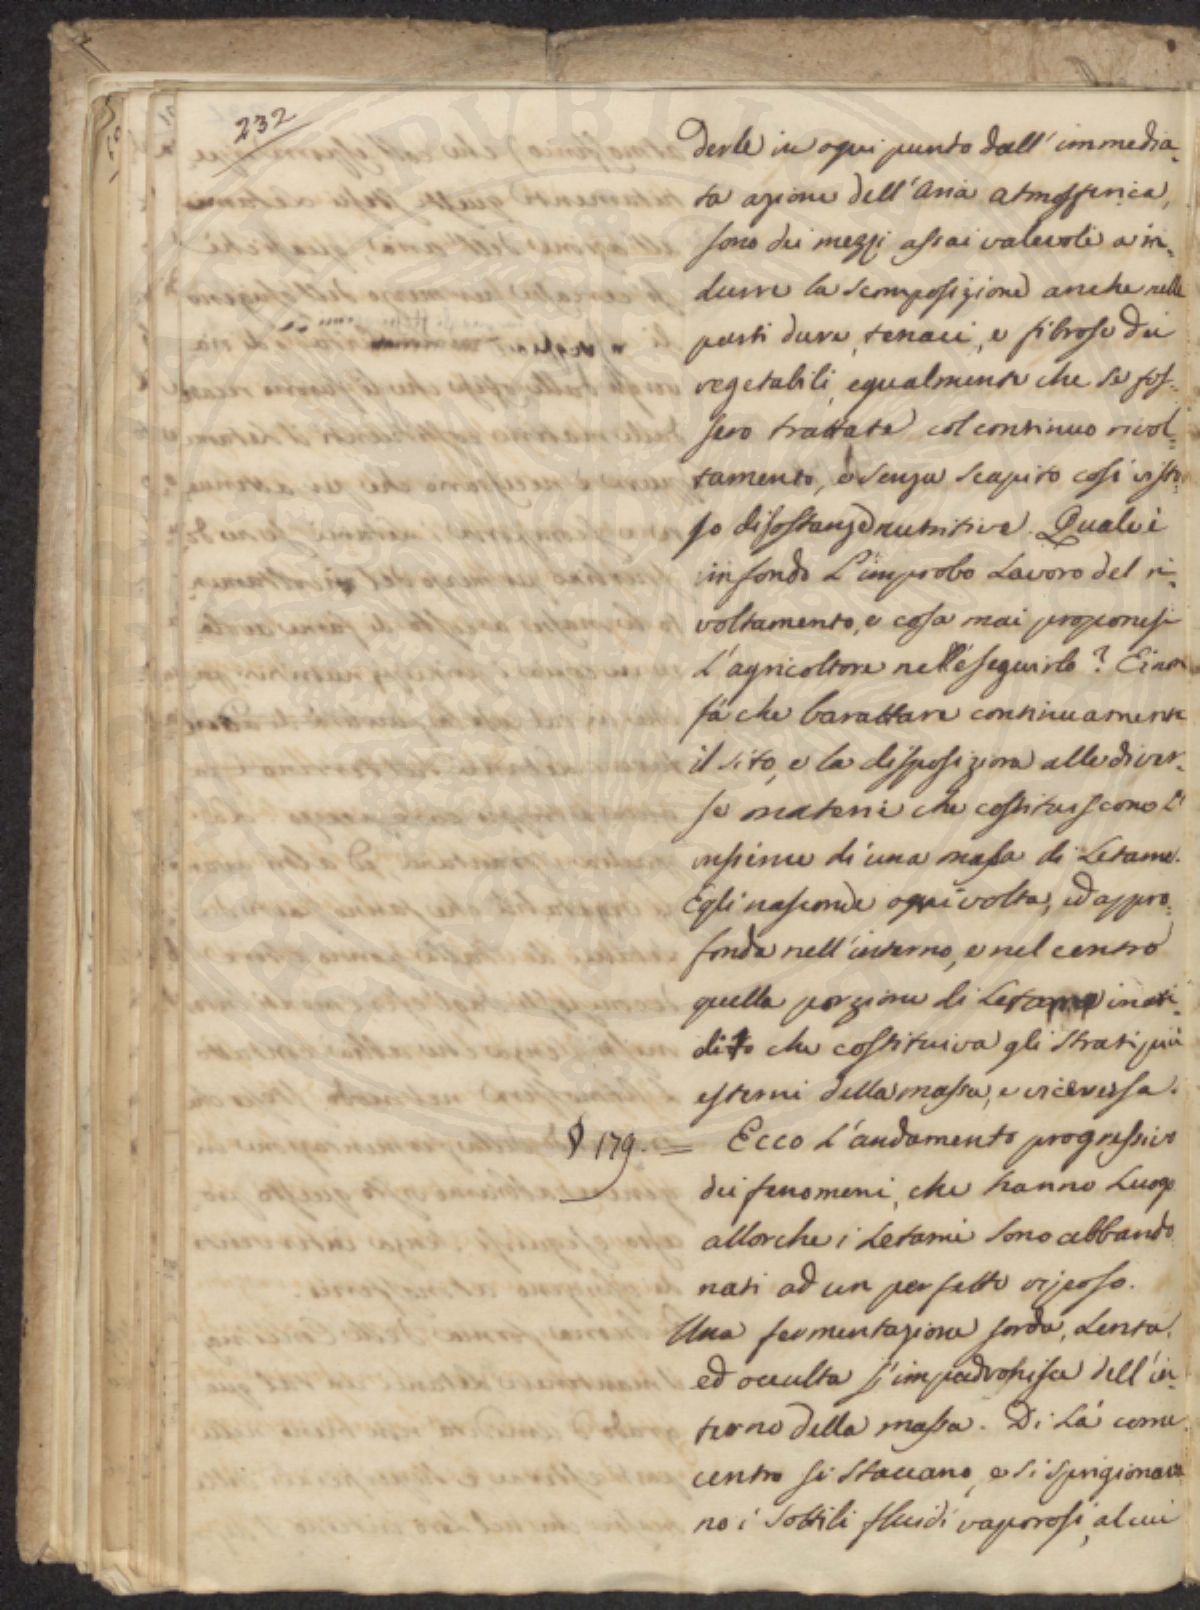 232
derle in ogni punto dall' immedia-
ta azione dell'Aria atmosferica,
sono dei mezzi assai valevoli a in-
durre la scomposizione anche nelle
parti dure, tenaci, e fibrose dei
vegetabili, egualmente che se fos-
sero trattate col continuo rivol-
tamento, e senza scapito così visto-
so di sostanze nutritive. Qual è
in fondo L'improbo Lavoro del ri-
voltamento, e cosa mai proponesi
L'agricoltore nell'eseguirlo? Ei non
fà che barattare continuamente
il sito, e la disposizione alle diver-
se materie che costituiscono L'
insieme di una massa di Letame.
Egli nasconde ogni volta, ed appro-
fonda nell'interno, e nel centro
quella porzione di Letame inari-
dito che costituiva gli strati più
esterni della massa, e viceversa.
§ 179. = Ecco L'andamento progressivo
dei fenomeni, che hanno Luogo
allorche i Letami sono abbando
nati ad un perfetto riposo.
Una fermentazione sorda, Lenta,
ed occulta s'impadronisce dell'in-
terno della massa. Di Là come
centro si staccano, e si sprigiona
no i sottili fluidi vaporosi, al cui